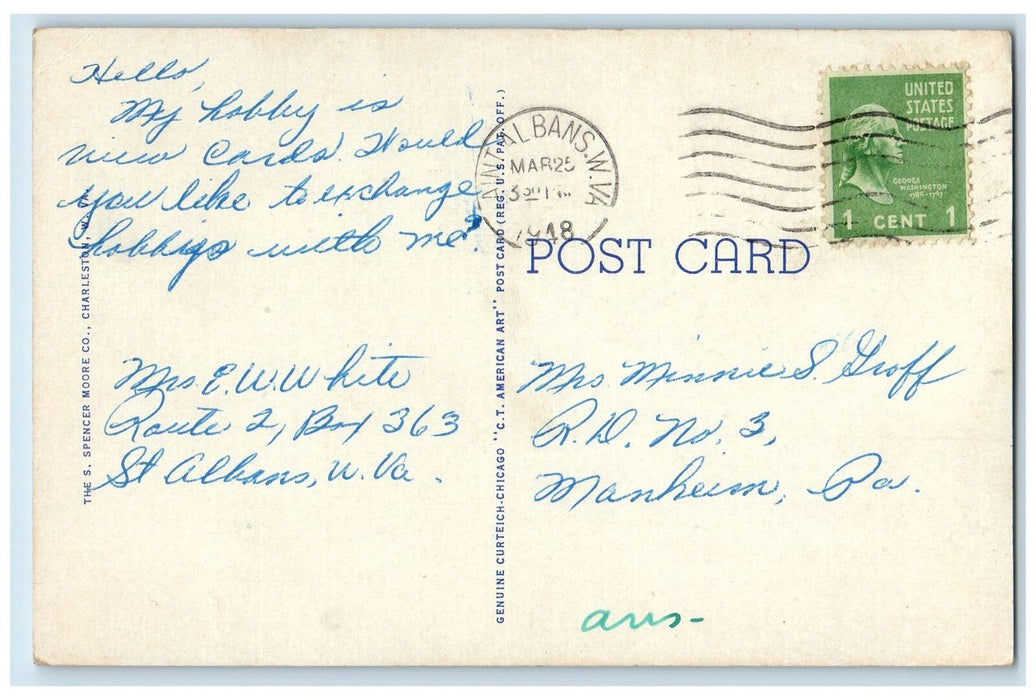 Hello,
My hobby is
view cards. Would
you like to exchange
hobbies with me?
Mrs. E. W. White
Route 2, Box 363
St Albans, W. Va.
THE S. SPENCER MOORE CO., CHARLESTON, W. VA.
GENUINE CURTEICH-CHICAGO "C.T. AMERICAN ART" POST CARD (REG. U.S. PAT. OFF.)
ALBANS. W. VA
MAR 25
1948
UNITED
STATES
POSTAGE
GEORGE
WASHINGTON
1789-1797
1 CENT 1
POST CARD
Mrs. Minnie S. Groff
R.D. No. 3,
Manheim, Pa.
ans-